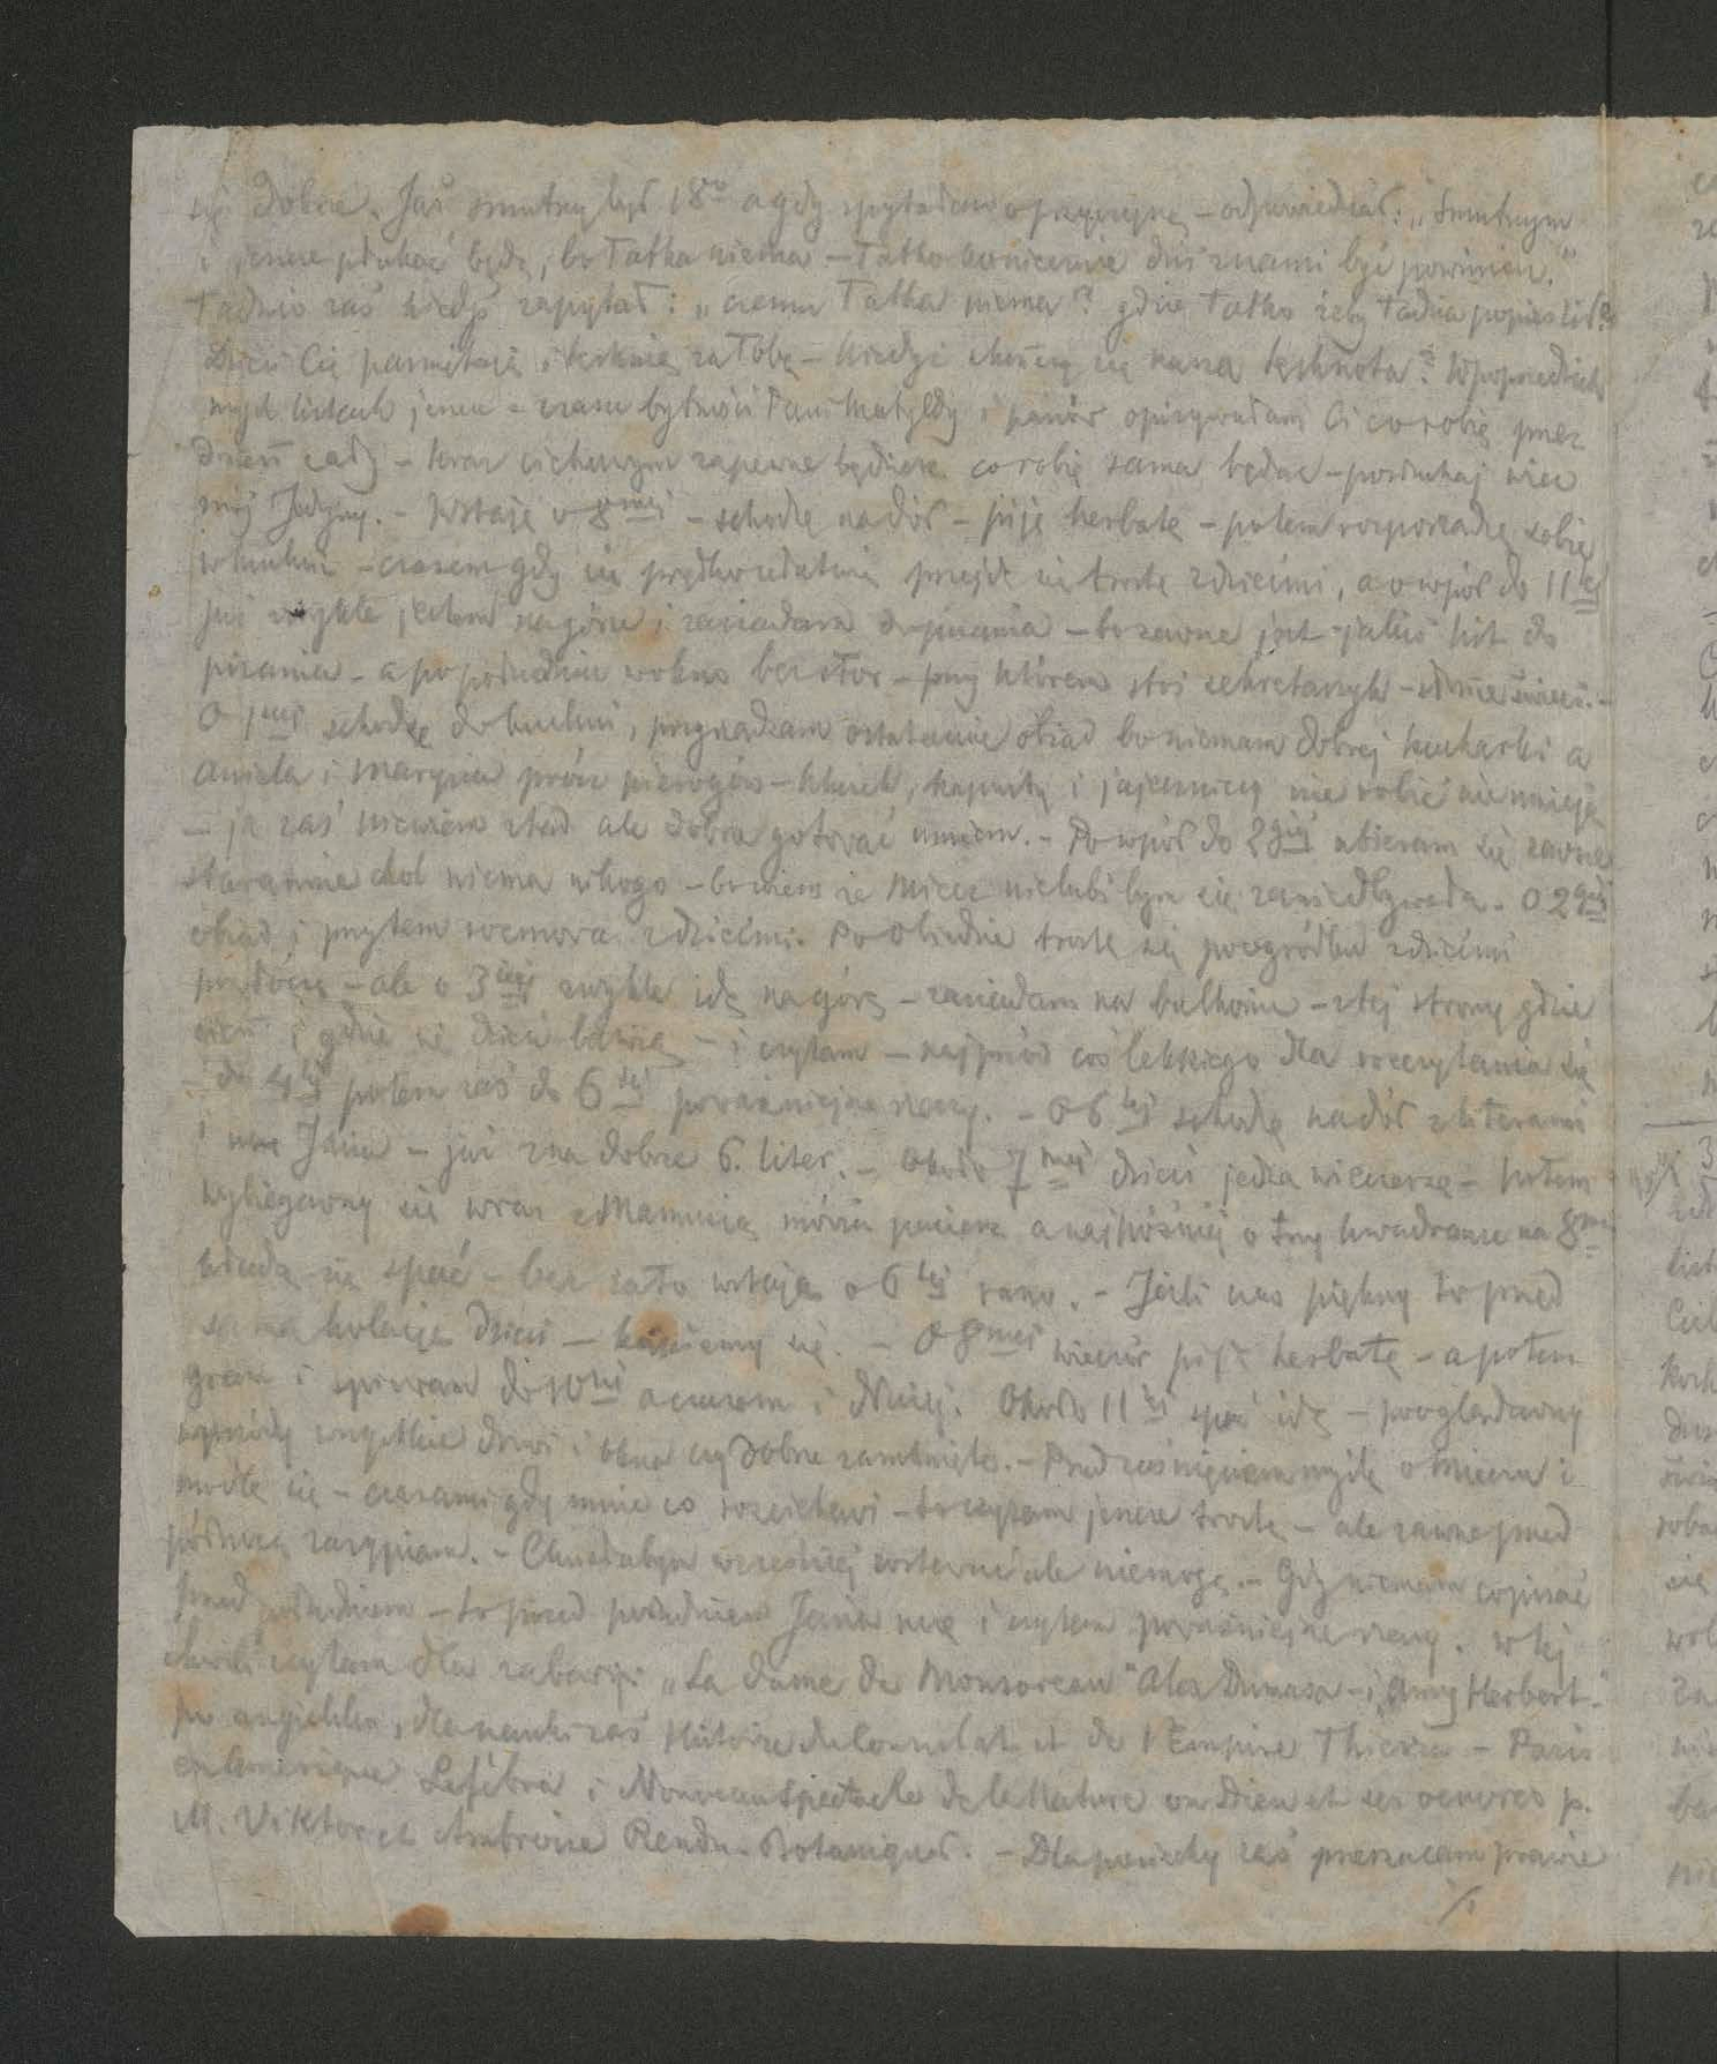 się dobrze. Jaś smutny był 18go a gdy spytałam o przyczynę – odpowiedział: „Smutnym
i jeszcze płakać będę, bo Tatka niema – Tatko koniecznie dziś z nami być powinien."
Tadzio zaś kiedyś zapytał: „czemu Tatka niema? gdzie Tatko żeby Tadzia popieścił?"
Dzieci Cię pamiętają i tęsknią za Tobą – Kiedyż skończy się nasza tęsknota? W poprzednich
mych listach jeszcze z czasu bytności Pani Matyldy i panów opisywałam Ci co robię przez
dzień cały – teraz ciekawym zapewne będziesz co robię sama będąc – posłuchaj więc
mój Jedyny. – Wstaję o 8mej – schodzę na dół – piję herbatę – potem rozporządzę sobie
w kuchni – czasem gdy się prędko załatwię przejdę się trochę z dziećmi, a o wpół do 11ej
już zwykle jestem na górze i zasiadam do pisania – bo zawsze jest jakiś list do
pisania – a po południu w okno bez stor – przy którem stoi sekretarzyk – słońce świeci. –
O 1szej schodzę do kuchni, przyrządzam ostatecznie obiad bo niemam dobrej kucharki a
Aniela i Marysia prócz pierogów – klusek, kapusty i jajecznicy nie robić nie umieją
– ja zaś niewiem zkąd ale dobrze gotować umiem. – Po wpół do 2giej ubieram się zawsze
starannie choć niema nikogo – bo wiem że Miecz nielubi bym się zaniedbywała. O 2giej
obiad i przytem rozmowa z dziećmi. Po obiedzie trochę się po ogródku z dziećmi
powłóczę – ale o 3ciej zwykle idę na górę – zasiadam na balkonie – z tej strony gdzie
cień i gdzie się dzieci bawią – i czytam – najprzód coś lekkiego dla rozczytania się
– do 4tej potem zaś do 6tej poważniejsze rzeczy. – O 6tej schodzę na dół z literami
i uczę Jasia – już zna dobrze 6. liter. – Około 7mej dzieci jedzą wieczerzę – potem
wybiegawszy się wraz z Mamusią mówią pacierz a najpóźniej o trzy kwadranse na 8mą
kładą się spać – bez zato wstają o 6tej rano. – Jeśli czas piękny to przed
samą kolacją dzieci – kąpiemy się. – O 8mej wieczór piję herbatę – a potem
gram i śpiewam do 10tej a czasem i dłużej. Około 11tej spać idę – pooglądawszy
wprzódy wszystkie drzwi i okna czy dobrze zamknięte. – Przed zaśnięciem myślę o Mieczu i
modlę się – czasami gdy mnie co rozciekawi – to czytam jeszcze trochę – ale zawsze przed
północą zasypiam. – Chciałabym wcześniej wstawać ale niemogę. – Gdy niemam co pisać
przed południem – to przed południem Jasia uczę i czytam poważniejsze rzeczy. W tej
chwili czytam dla zabawy: „La dame de Monsoreau" Alex Dumasa – i „Amy Herbert"
po angielsku, dla nauki zaś Histoire du Consulat et de l'Empire Thiersa – Paris
en Amérique Lefébra i Nouveau Spectacle de la Nature ou Dieu et ses oeuvres p.
M. Viktor et Ambroise Rendu. Botanique. – Dla pociechy zaś przerzucam prawie